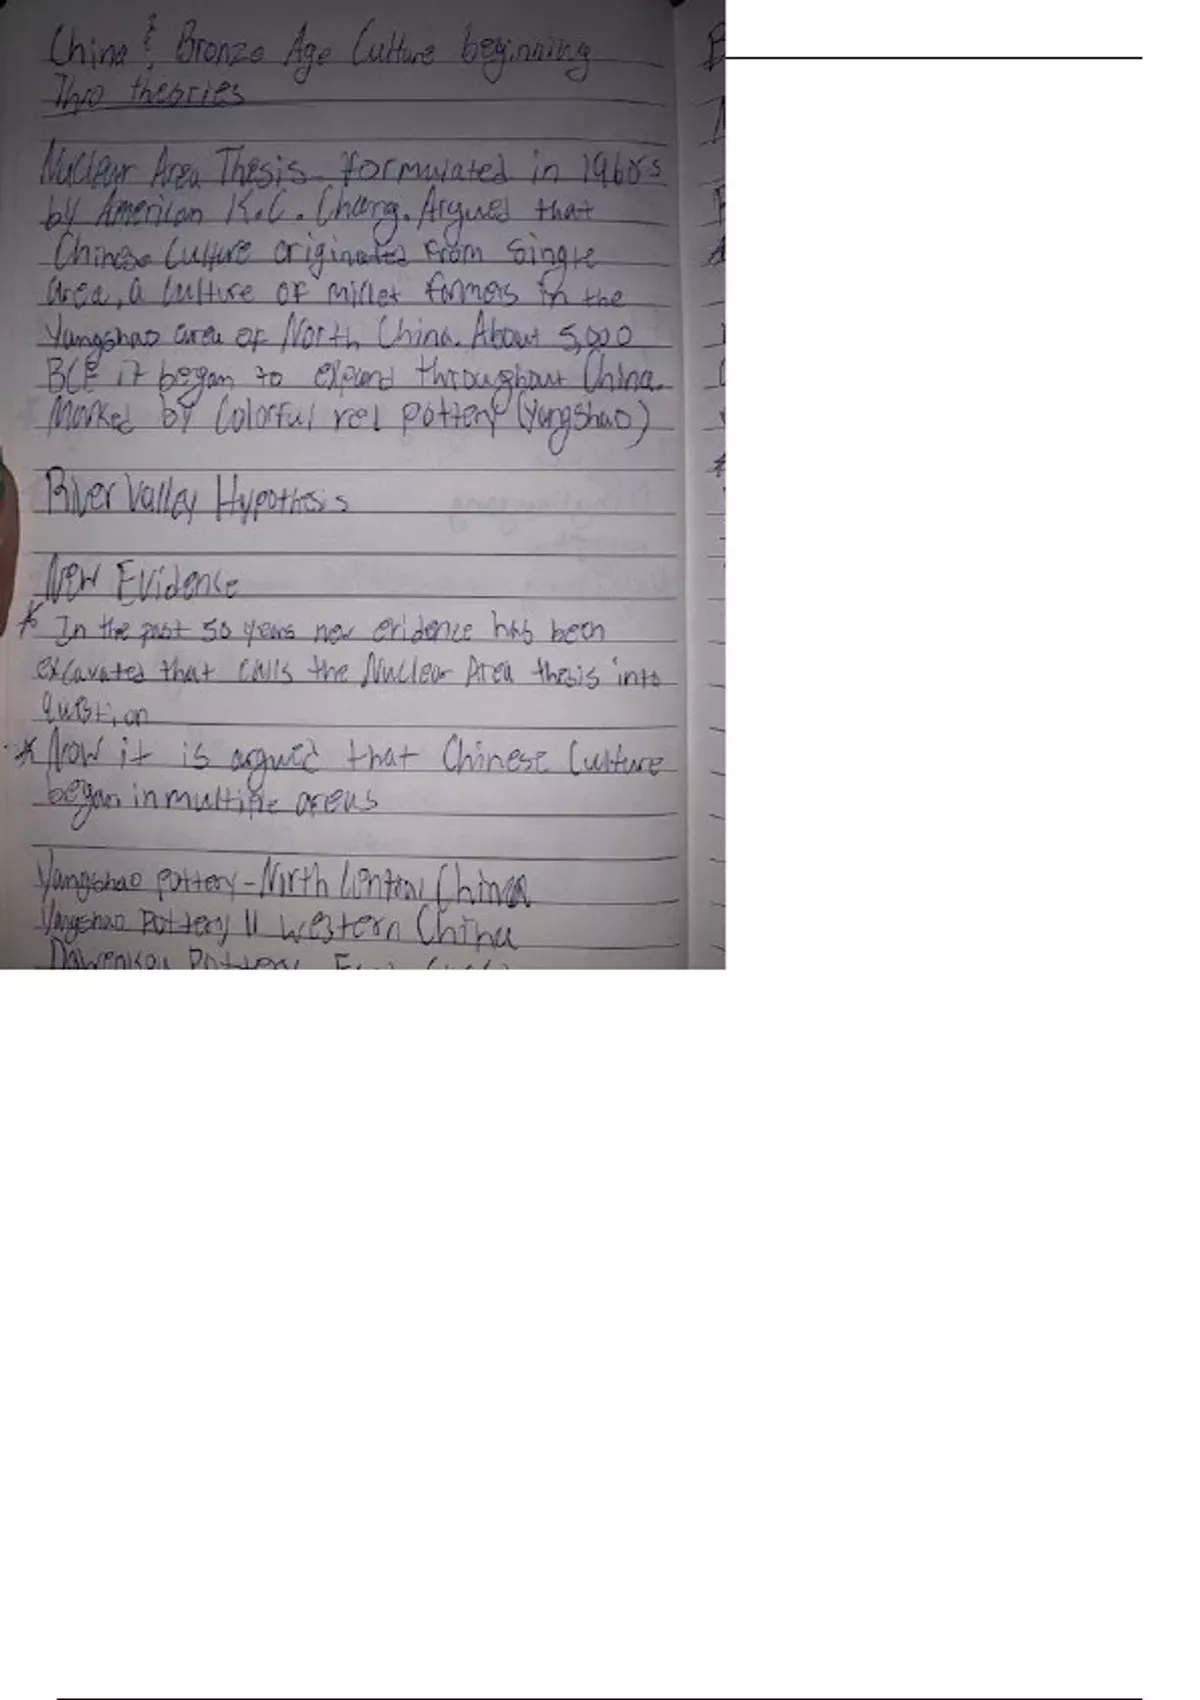 China & Bronze Age Culture beginning
Two theories
Nuclear Area Thesis - formulated in 1960s
by American K.C. Chang. Argued that
Chinese Culture originated from single
area, a culture of millet farmers in the
Yangshao area of North China. About 5,000
BCE it began to expand throughout China.
Marked by Colorful red pottery (Yangshao)
River Valley Hypothesis
New Evidence
* In the past 50 years new evidence has been
excavated that calls the Nuclear Area thesis into
question
* Now it is argued that Chinese Culture
began in multiple areas
Yangshao pottery - North Central China
Yangshao Pottery II Western China
Dawenkou Pottery